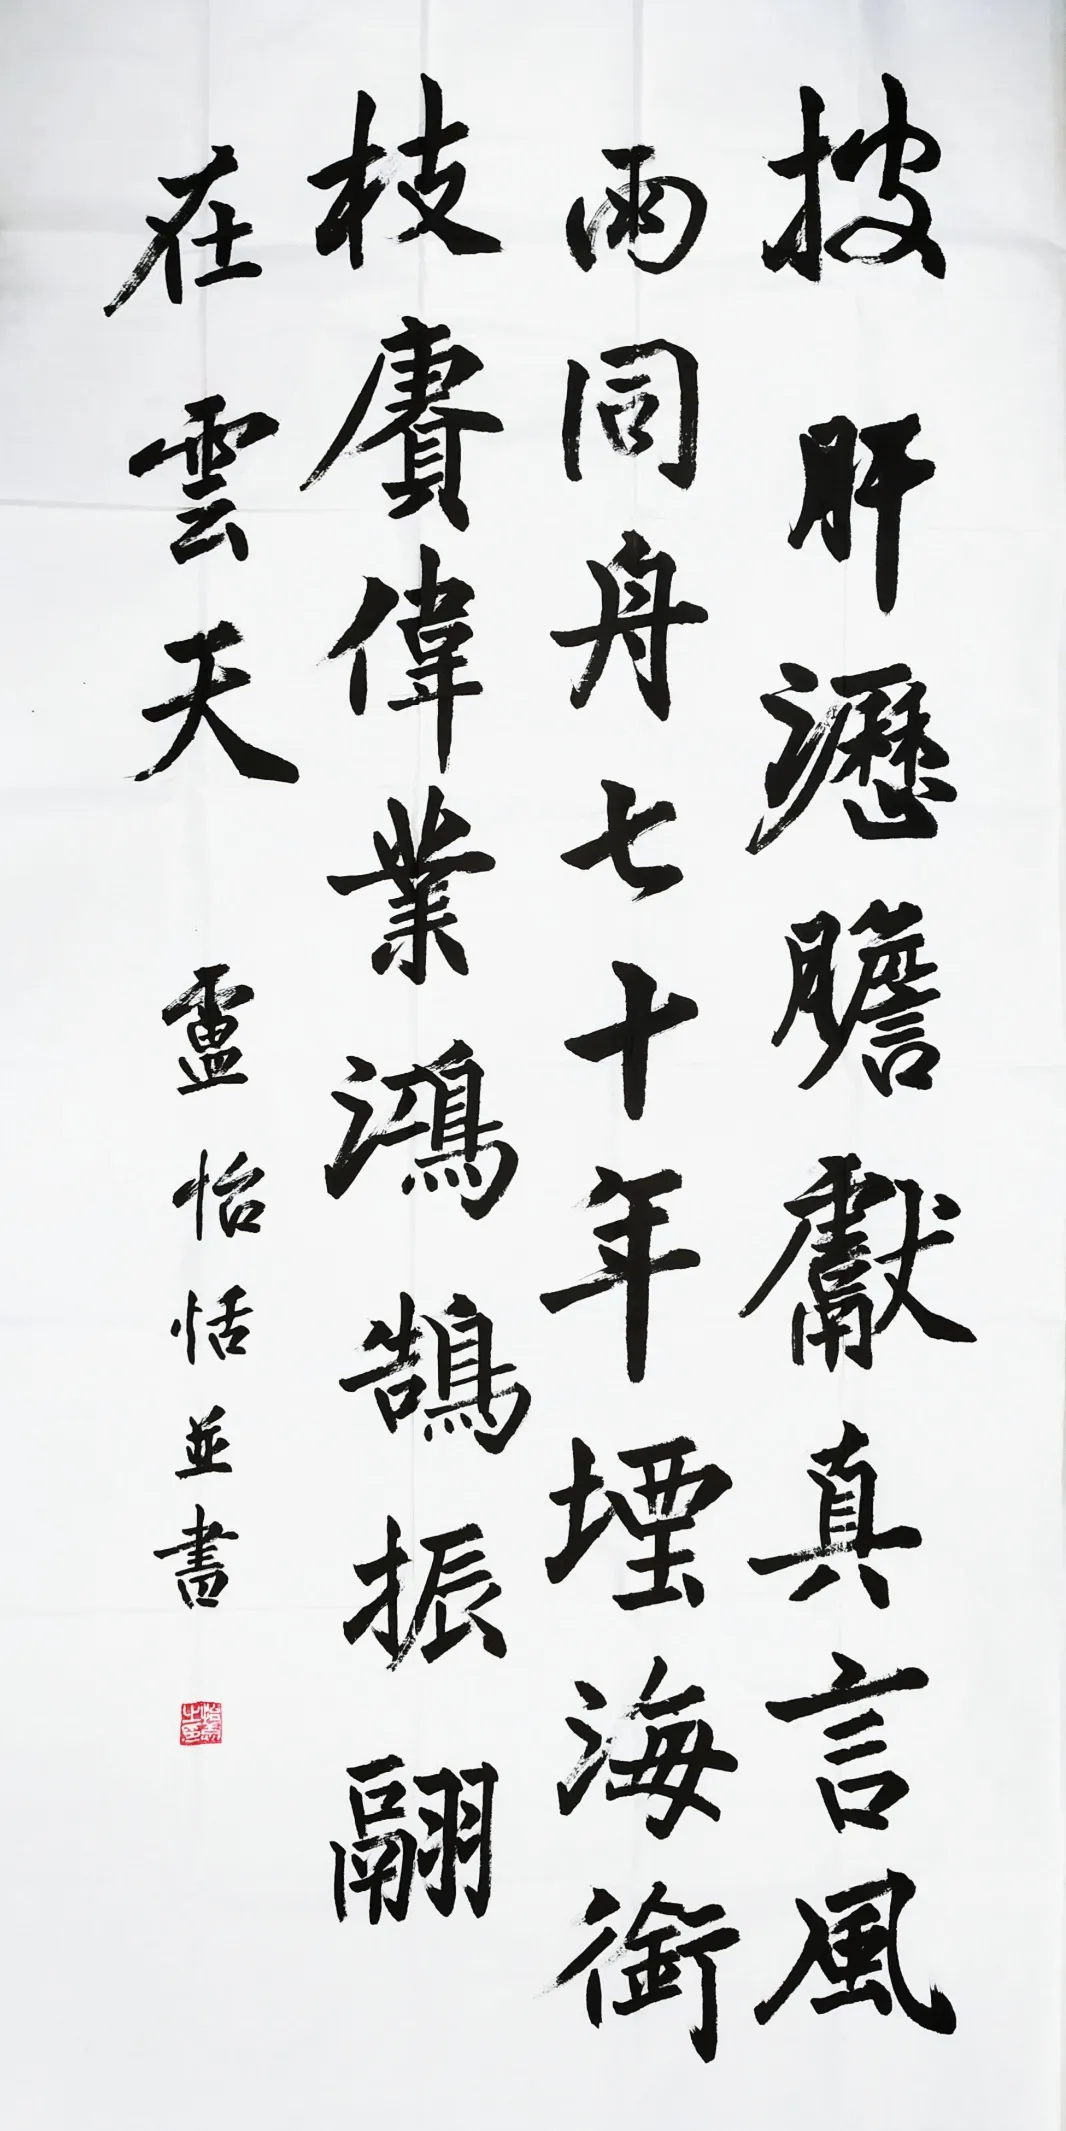 披肝瀝膽獻真言風
雨同舟七十年堙海銜
枝賡偉業鴻鵠振翮
在雲天
盧怡恬並書